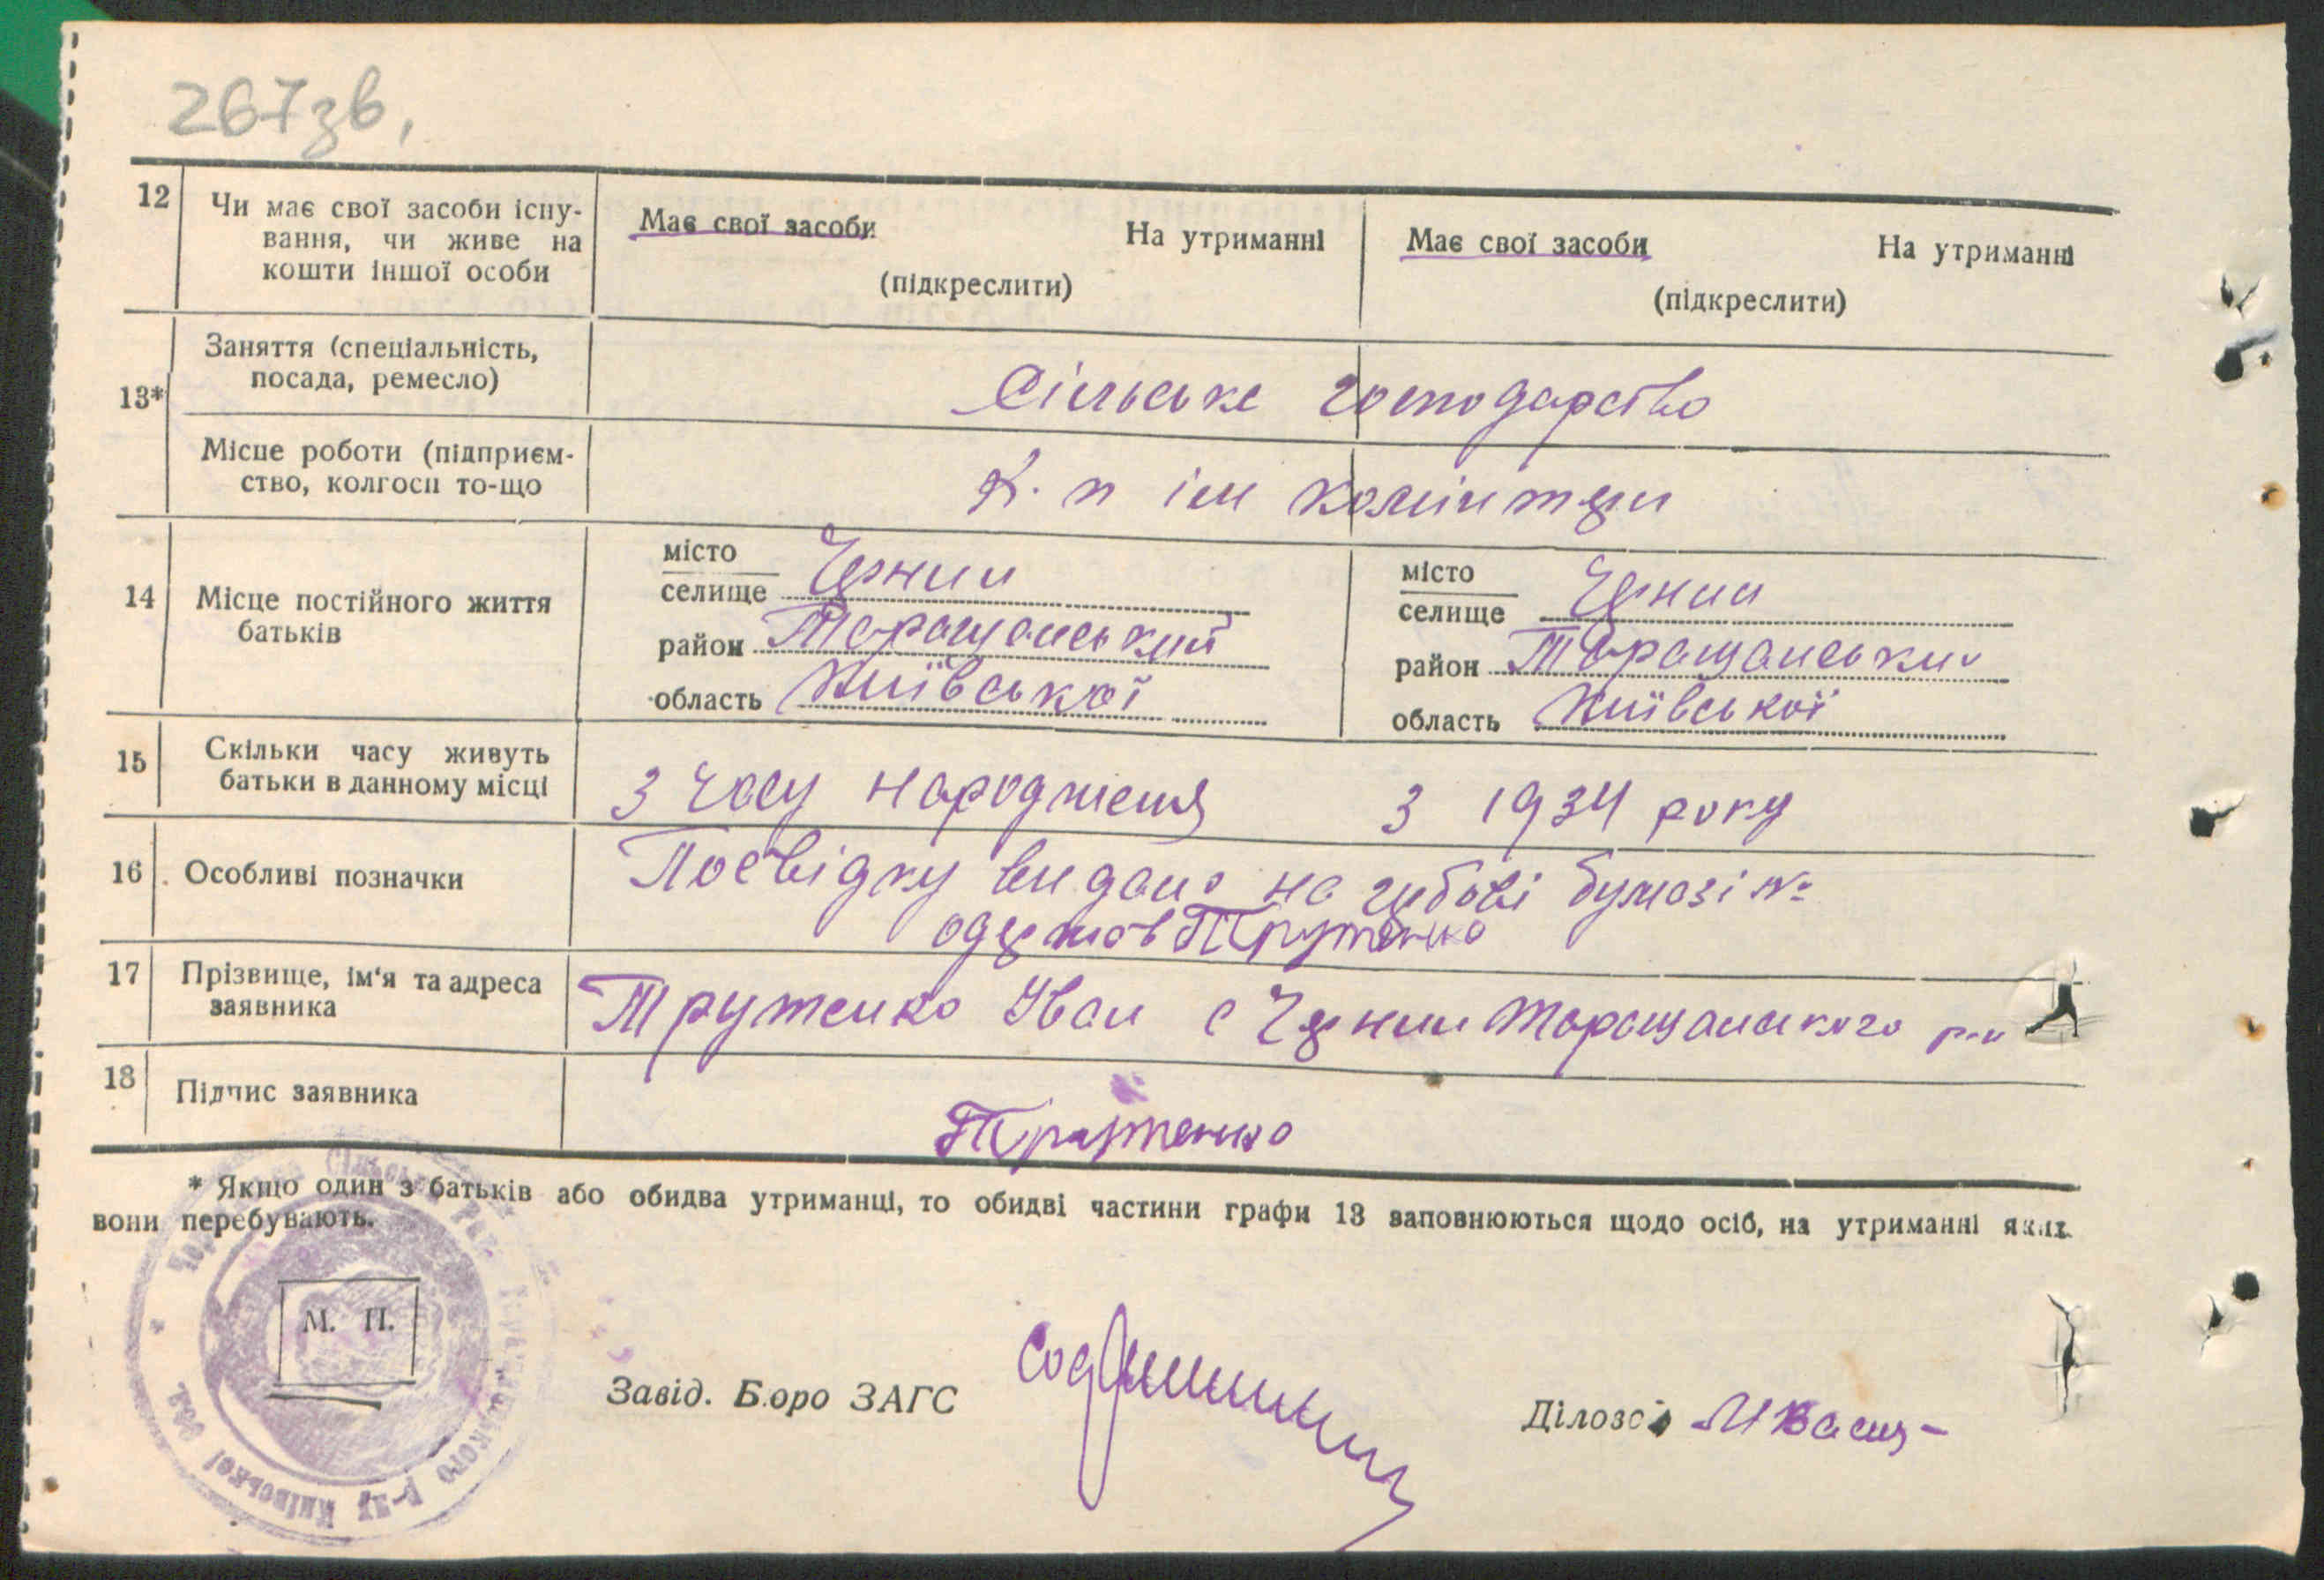 267зв,
12 Чи має свої засоби існу-
вання, чи живе на
кошти іншої особи
Має свої засоби На утриманні
(підкреслити)
Має свої засоби На утриманні
(підкреслити)
13*
Заняття (спеціальність,
посада, ремесло)
Сільське господарство
Місце роботи (підприєм-
ство, колгосп то-що
ім
14 Місце постійного життя
батьків
місто
селище
район Таращанський
область Київської
місто
селище
район Таращанськи
область Київської
15 Скільки часу живуть
батьки в данному місці
З часу народженя
З 1934 року
16 Особливі позначки
Посвідку видано на бумазі №
Труженко
17 Прізвище, ім'я та адреса
заявника
Труженко Іван с Таращанського р-н
18 Підпис заявника
Труженко
* Якщо один з батьків або обидва утриманці, то обидві частини графи 13 заповнюються щодо осіб, на утриманні яких
вони перебувають.
М. П.
Завід. Бюро ЗАГС
Сільська Рада
р-ну Київської обл.